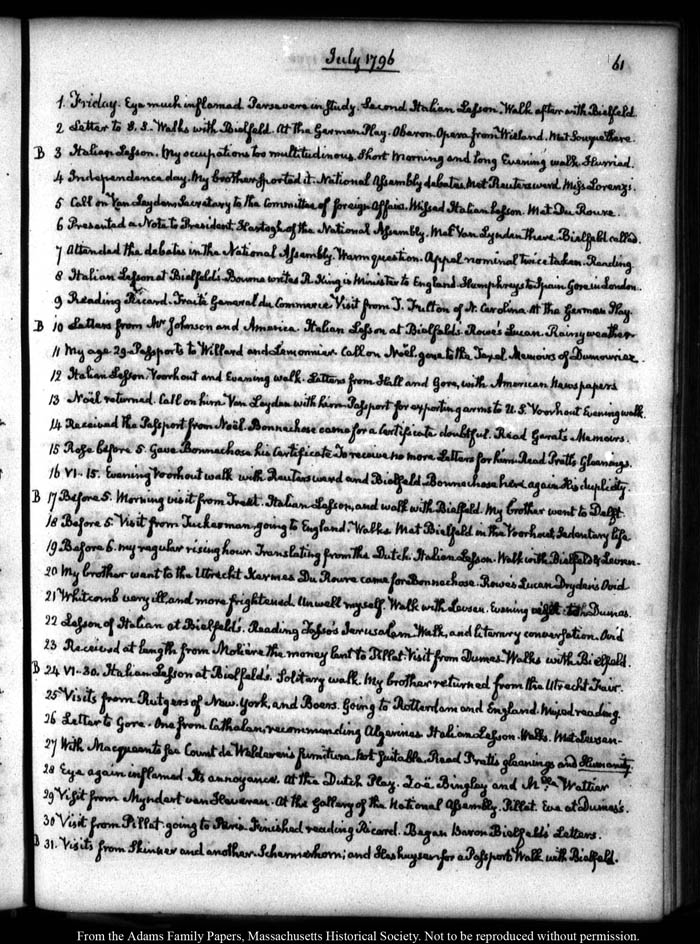 July 1796
61
1. Friday. Eye much inflamed. Persevere in study. Second Italian Lesson. Walk after with Bielfeld
2 Letter to S. S. Walks with Bielfeld. At the German Play. Oberon. Opera from Wieland. Met there.
B 3 Italian Lesson. My occupations too multitudinous. Short Morning and long Evening walk. Hurried.
4 Independence day. My brother sported it. National Assembly debates. Met Reutersward. Miss Lorenzi.
5 Call on Van Leyden, Secretary to the Committee of foreign Affairs. Missed Italian Lesson. Met Du Roure.
6 Presented a Note to President Hartogh of the National Assembly. Met Van Lynden there. Bielfeld called.
7 Attended the debates in the National Assembly. Warm question. Appel nominal twice taken. Reading
8 Italian Lesson at Bielfeld's. Bourne writes R. King is Minister to England. Humphreys to Spain. Gore in London.
9 Reading Ricard. Traité General du Commerce. Visit from J. Fulton of N. Carolina. At the German Play.
B 10 Letters from Mr Johnson and America. Italian Lesson at Bielfeld's. Rowe's Lucan. Rainy weather
11 My age 29. Passports to Willard and Lemonnier. Call on Noël, gone to the Texel. Memoirs of Dumouriez.
12 Italian Lesson. Voorhout and Evening walk. Letters from Hall and Gore, with American Newspapers
13 Noël returned. Call on him. Van Leyden with him. Passport for exporting arms to U.S. Voorhout Evening walk.
14 Received the Passport from Noël. Bonnechose came for a Certificate doubtful. Read Garat's Memoirs.
15 Rose before 5. Gave Bonnechose his Certificate. To receive no more Letters for him. Read Pratt's Gleanings.
16 VI-15. Evening Voorhout walk with Reutersward and Bielfeld. Bonnechose here again. His duplicity.
B 17 Before 5. Morning visit from Italian Lesson, and walk with Bielfeld. My brother went to Delft.
18 Before 5. Visit from Tuckerman going to England. Walks. Met Bielfeld in the Voorhout. Sedentary life
19 Before 6. my regular rising hour. Translating from the Dutch. Italian Lesson. Walk with Bielfeld & Levsen.
20 My brother went to the Utrecht Kermes. Du Roure came for Bonnechose. Rowe's Lucan. Dryden's Ovid
21 Whitcomb very ill and more frightened. Unwell myself. Walk with Levsen. Evening visit to Dumas.
22 Lesson of Italian at Bielfeld's. Reading Tasso's Jerusalem. Walk, and literary conversation. Ovid
23 Received at length from Moliere the money lent to Pillet. Visit from Dumas. Walks with Bielfeld.
B 24 VI-30. Italian Lesson at Bielfeld's. Solitary walk. My brother returned from the Utrecht Fair.
25 Visits from Rutgers of New. York, and Boers. Going to Rotterdam and England. Mixed reading.
26 Letter to Gore. One from Cathalan, recommending Algerines. Italian Lesson. Walks. Met Levsen.
27 With Macquaants see Count de Welderen's furniture. Not Suitable. Read Pratt's gleanings and Humanity
28 Eye again inflamed. Its annoyance. At the Dutch Play. Zoë. Bingley and Mlle Wattier
29 Visit from Myndert van Heveren. At the Gallery of the National Assembly. Pillet. Eve at Dumas's.
30 Visit from Pillet. going to Paris. Finished reading Ricard. Began Baron Bielfeld's Letters.
B 31. Visits from Skinker and another. Schermerhorn; and Hashuysen for a Passport. Walk with Bielfeld.
From the Adams Family Papers, Massachusetts Historical Society. Not to be reproduced without permission.